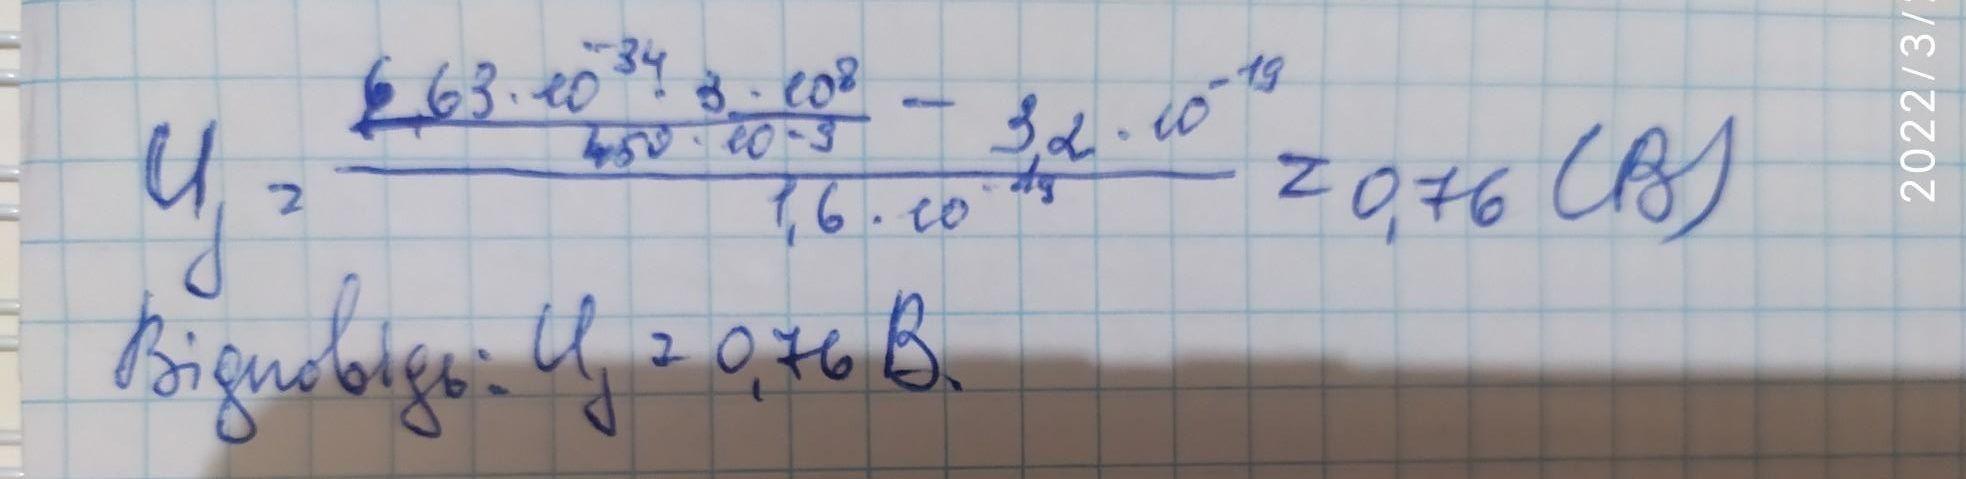 Uз = (6,63 · 10^-34 · 3 · 10^8 / 450 · 10^-9 - 3,2 · 10^-19) / 1,6 · 10^-19 = 0,76 (В)
Відповідь: Uз = 0,76 В.
2022/3/